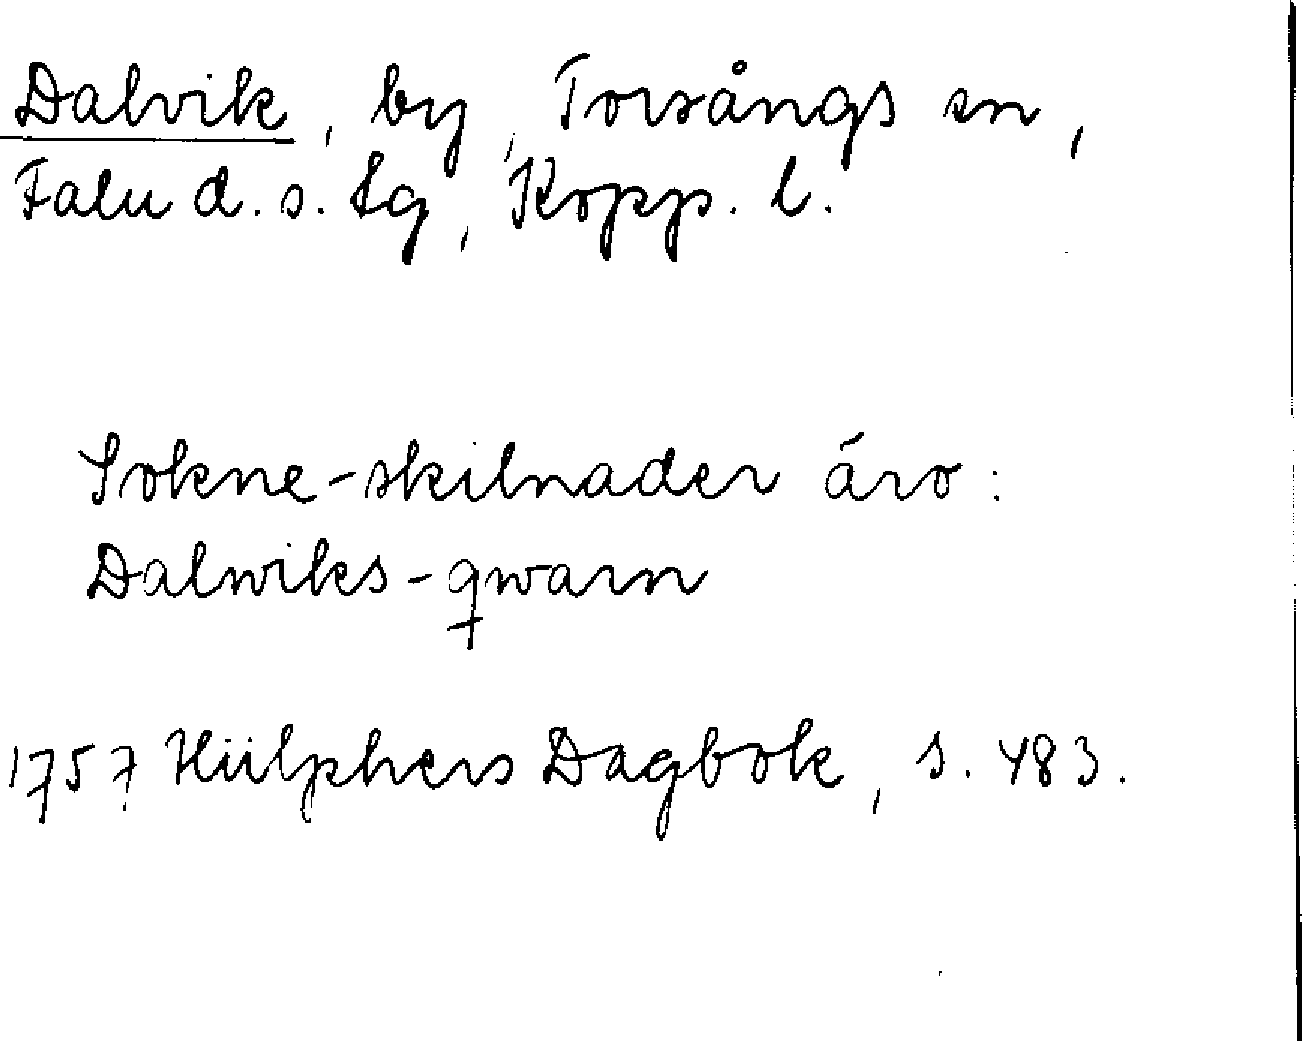 Dalvik, by, Torsångs sn,
Falu d. s. tg, Kopp. l.
Sokne-skilnader äro:
Dalwiks-qwarn
1757 Hülphers Dagbok, s. 483.